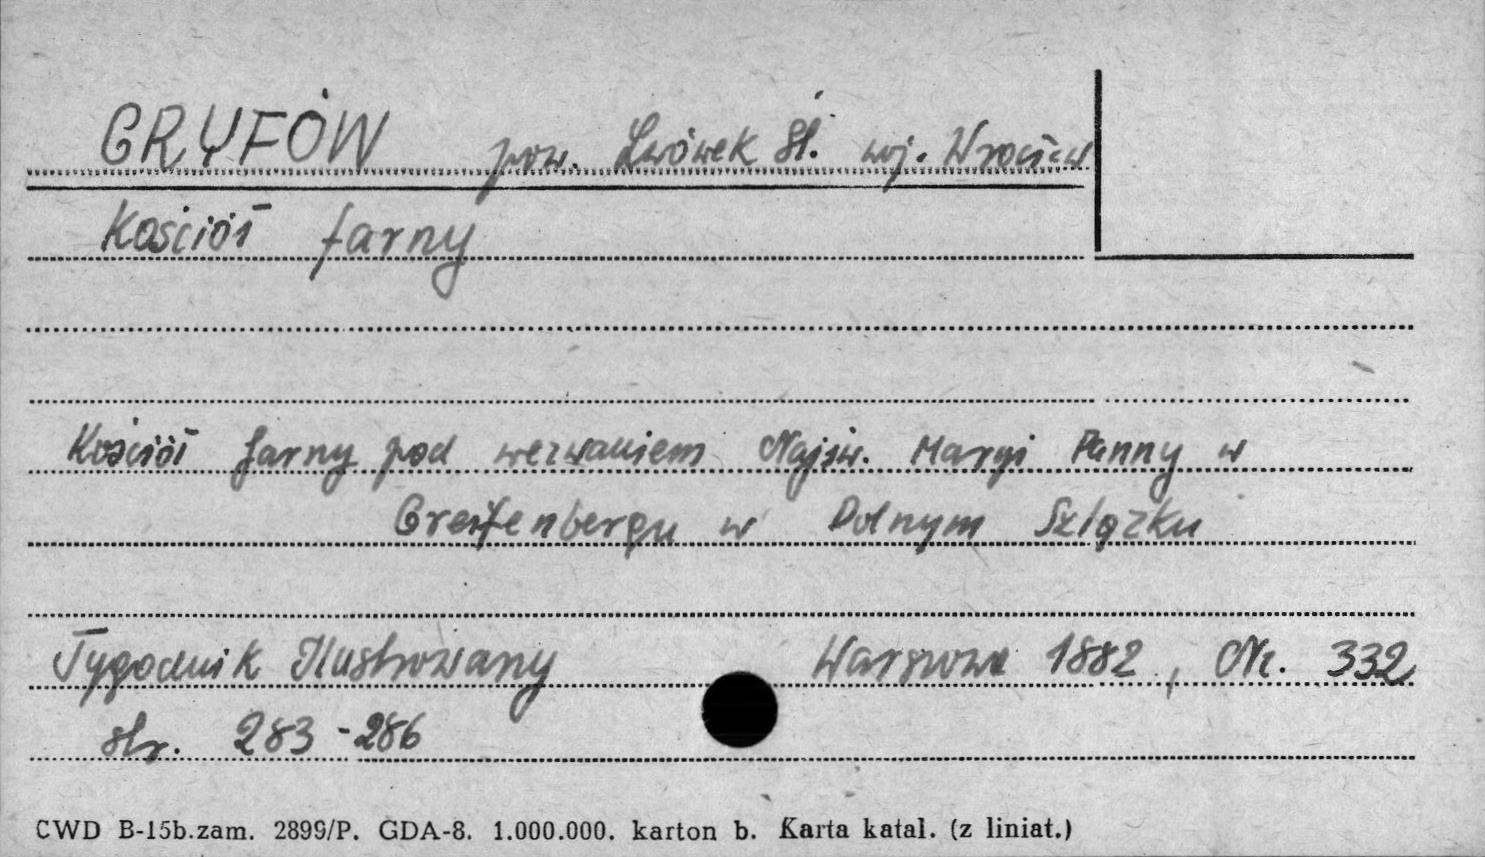 GRYFÓW pow. Lwówek Śl. woj. Wrocław
Kościół farny
Kościół farny pod wezwaniem Najśw. Maryi Panny w
Greifenbergu w Dolnym Szlązku
Tygodnik Ilustrowany Warszawa 1882, Nr. 332
str. 283-286
CWD B-15b.zam. 2899/P. GDA-8. 1.000.000. karton b. Karta katal. (z liniat.)